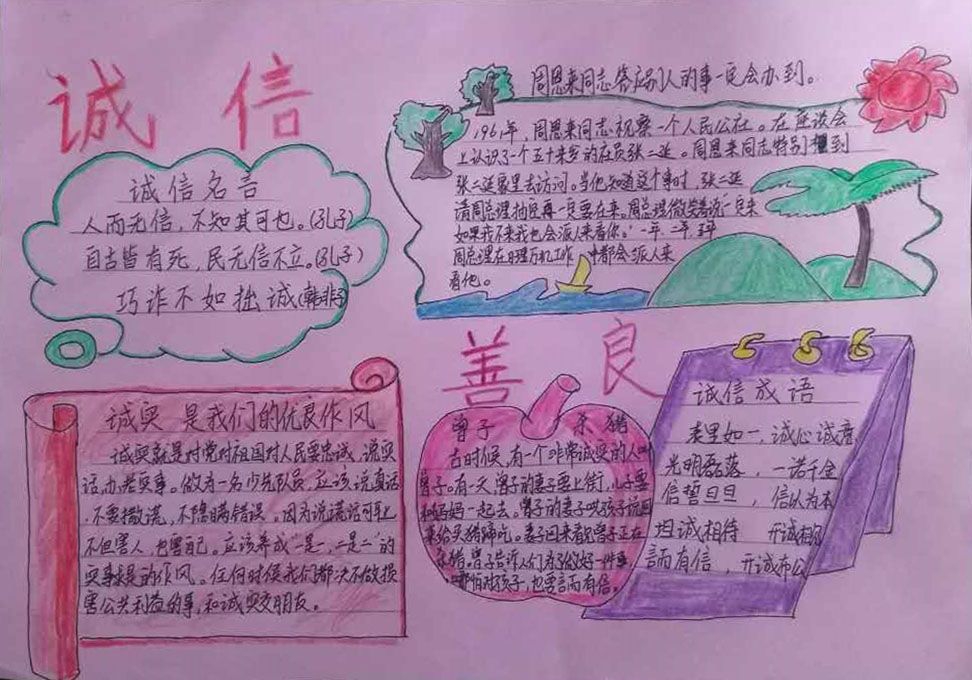 诚 信
诚信名言
人而无信，不知其可也。(孔子)
自古皆有死，民无信不立。(孔子)
巧诈不如拙诚(韩非子)
周恩来同志答应别人的事一定会办到。
1961年，周恩来同志视察一个人民公社。在座谈会
上认识了一个五十来岁的社员张二廷。周恩来同志特别 到
张二廷家里去访问。当他知道这个事时，张二廷
请周总理抽空再一定要在来。周总理微笑着说一定来
如果我不来我也会派人来看你。一年、二年、三年
周总理在日理万机工作 都会派人来
看他。
善 良
诚实 是我们的优良作风
诚实就是对党对祖国对人民要忠诚，说实
话，办老实事。做为一名少先队员，应该说真话
不要撒谎，不隐瞒错误。因为说谎话可耻
不但害人，也害自己。应该养成“一是一，二是二”的
实事求是的作风。任何时候我们都决不做损
害公共利益的事，和诚实交朋友。
曾子 杀猪
古时候，有一个非常诚实的人叫
曾子。有一天曾子的妻子要上街，儿子要
和妈妈一起去。曾子的妻子哄孩子说回
来给买猪蹄吃。妻子回来看见曾子正在
杀猪。曾子告诉人们为了做好一件事，
哪怕对孩子，也要言而有信。
诚信成语
表里如一，诚心诚意
光明磊落，一诺千金
信誓旦旦，信以为本
坦诚相待 开诚相见
言而有信，开诚布公